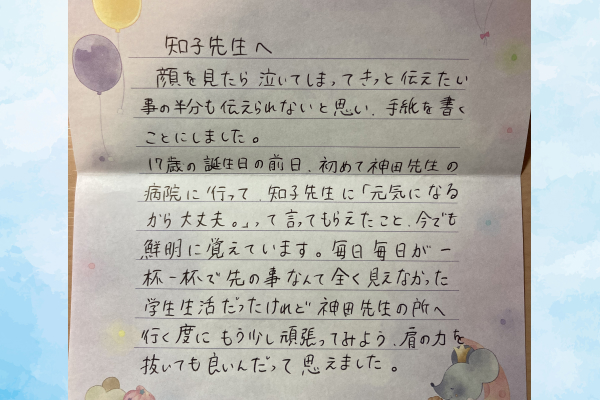 知子先生へ
顔を見たら泣いてしまってきっと伝えたい
事の半分も伝えられないと思い、手紙を書く
ことにしました。
17歳の誕生日の前日、初めて神田先生の
病院に行って、知子先生に「元気になる
から大丈夫。」って言ってもらえたこと、今でも
鮮明に覚えています。毎日毎日が一
杯一杯で先の事なんて全く見えなかった
学生生活だったけれど神田先生の所へ
行く度にもう少し頑張ってみよう、肩の力を
抜いても良いんだって思えました。